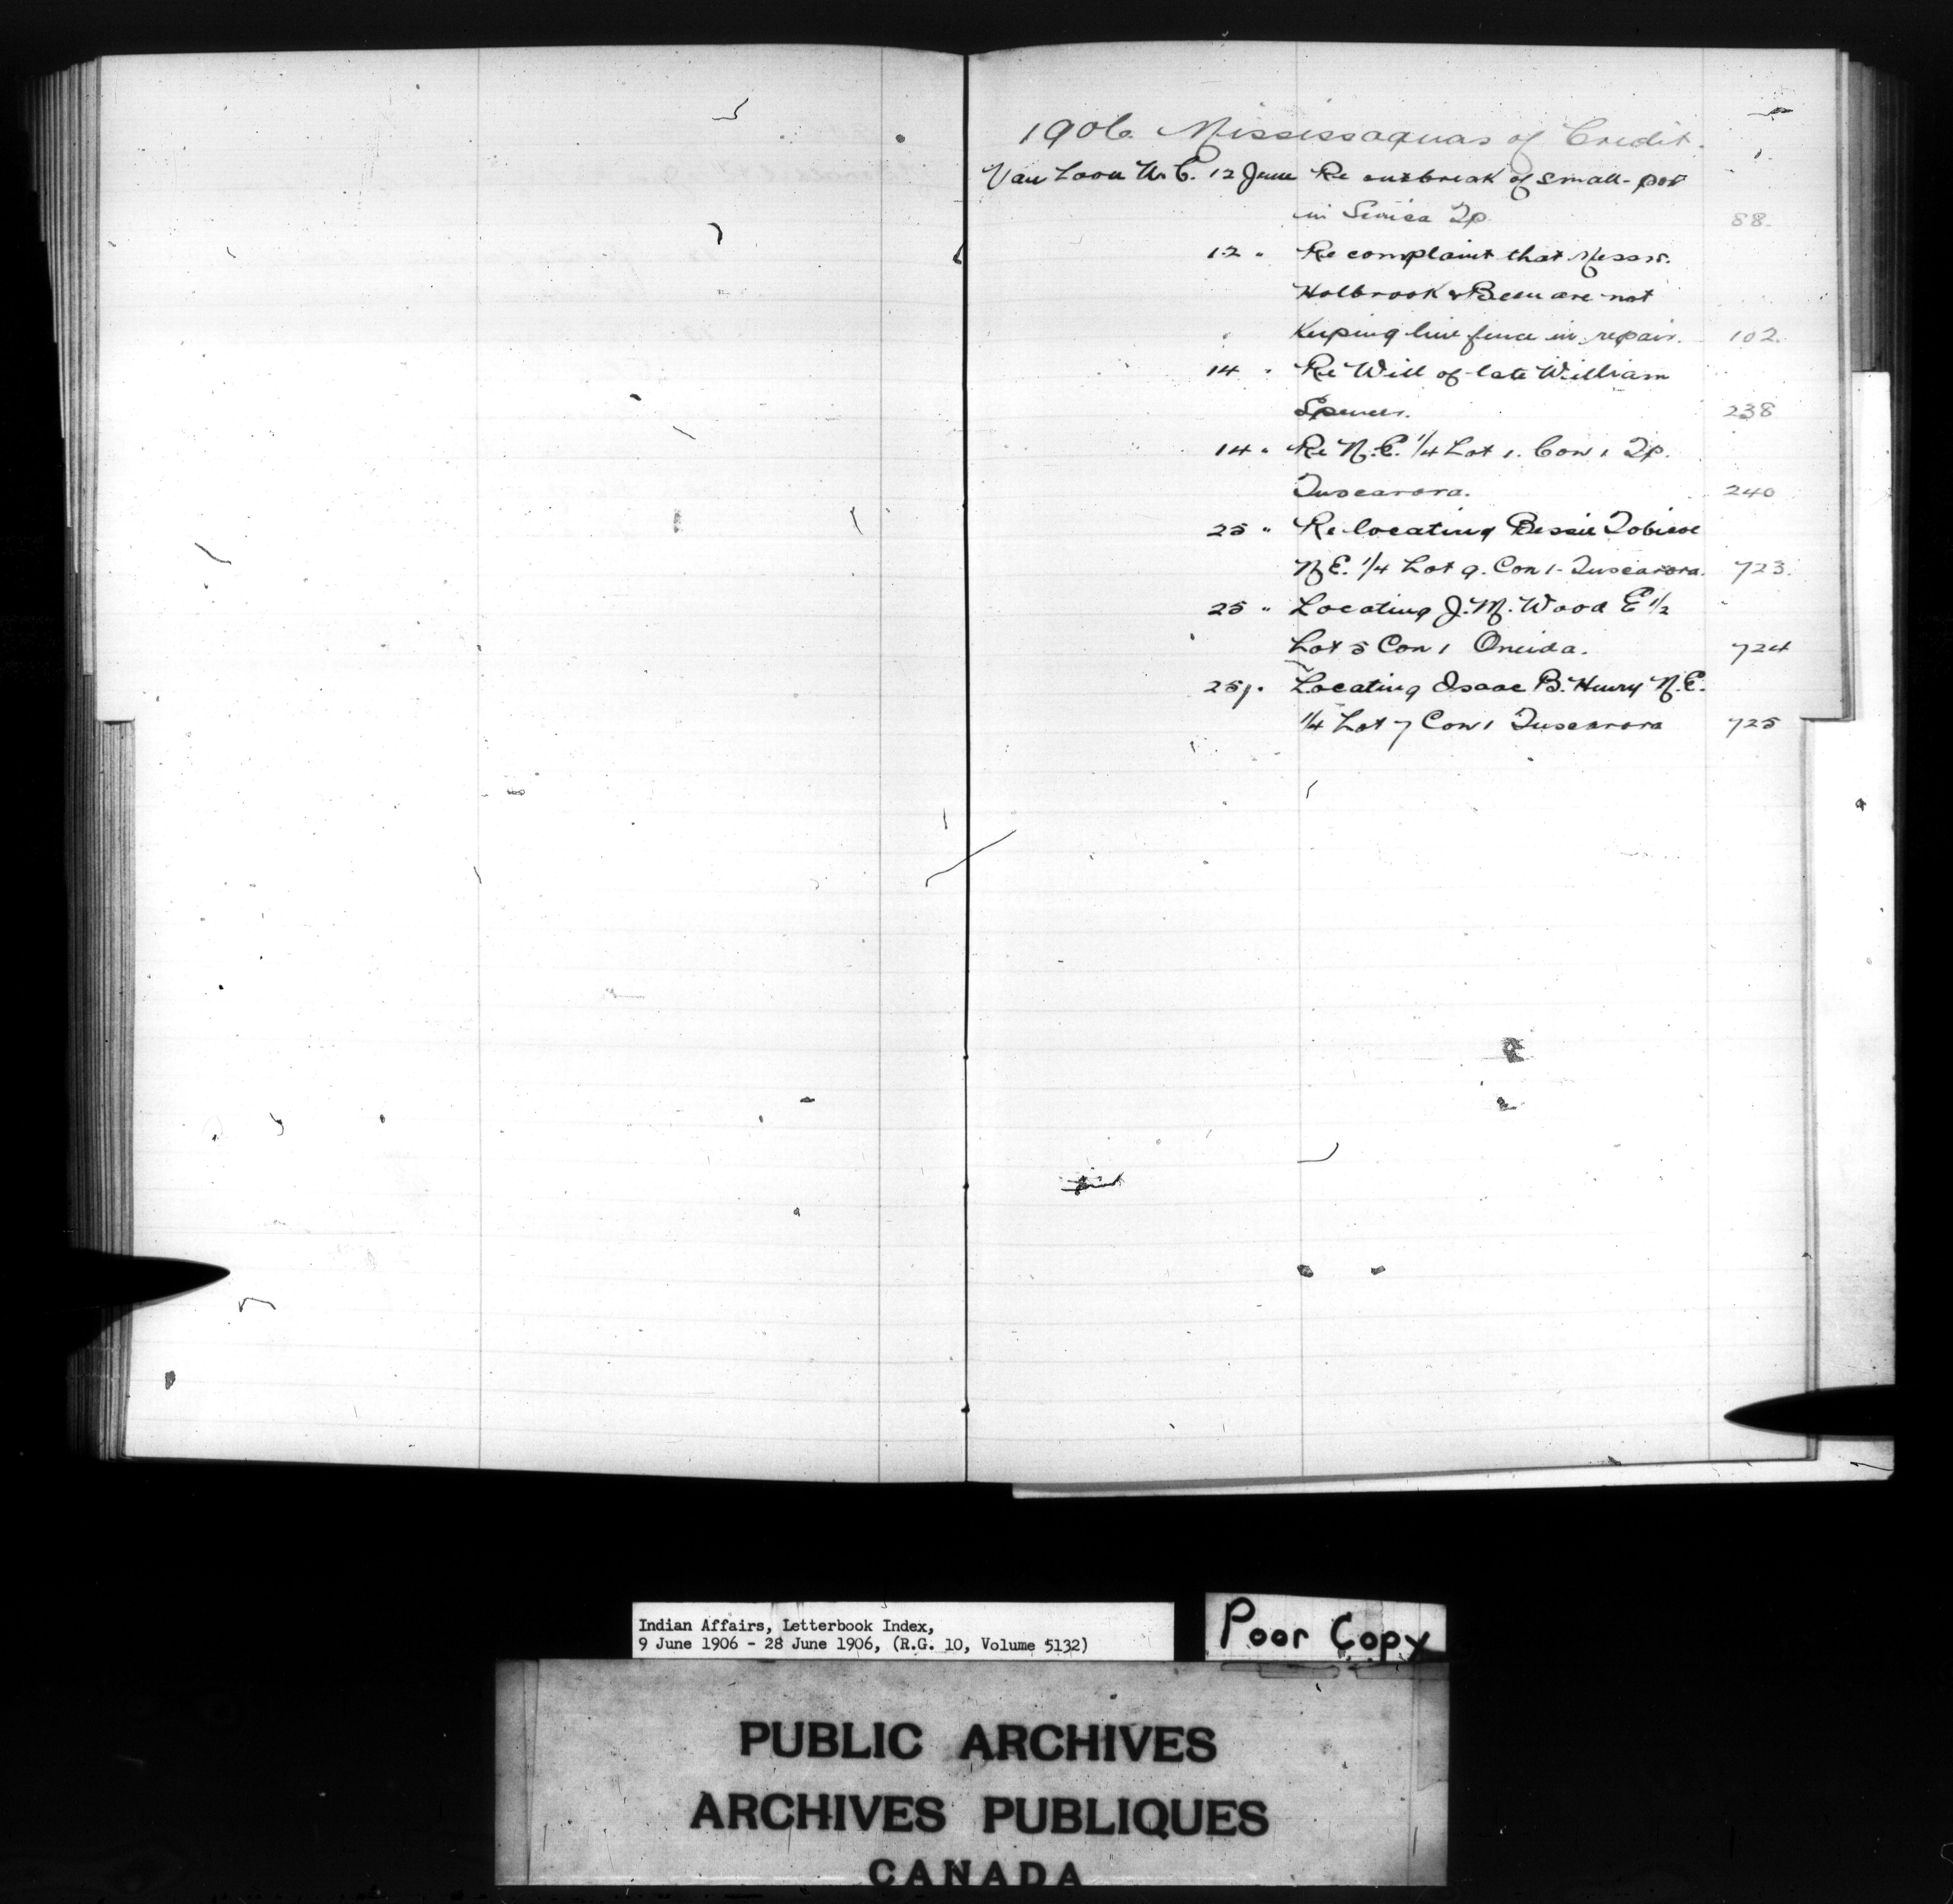 1906. Mississaquas of Credit.
Van Loon W. C. 12 June Re outbreak of small-pox
in Seneca Tp. 88.
12 " Re complaint that Messrs.
Holbrook & are not
Keeping line fence in repair. 102.
14 " Re Will of late William
Spencer. 238
14 " Re N.E. 1/4 Lot 1. Con 1 Tp.
Tuscarora. 240
25 " Re locating Bessie Tobicoe
N E. 1/4 Lot 9. Con 1 - Tuscarora. 723.
25 " Locating J. M. Wood E 1/2
Lot 5 Con 1 Oneida. 724
25 " Locating Isaac B. Henry N.E.
1/4 Lot 7 Con 1 Tuscarora 725
Indian Affairs, Letterbook Index,
9 June 1906 - 28 June 1906, (R.G. 10, Volume 5132)
Poor Copy
PUBLIC ARCHIVES
ARCHIVES PUBLIQUES
CANADA